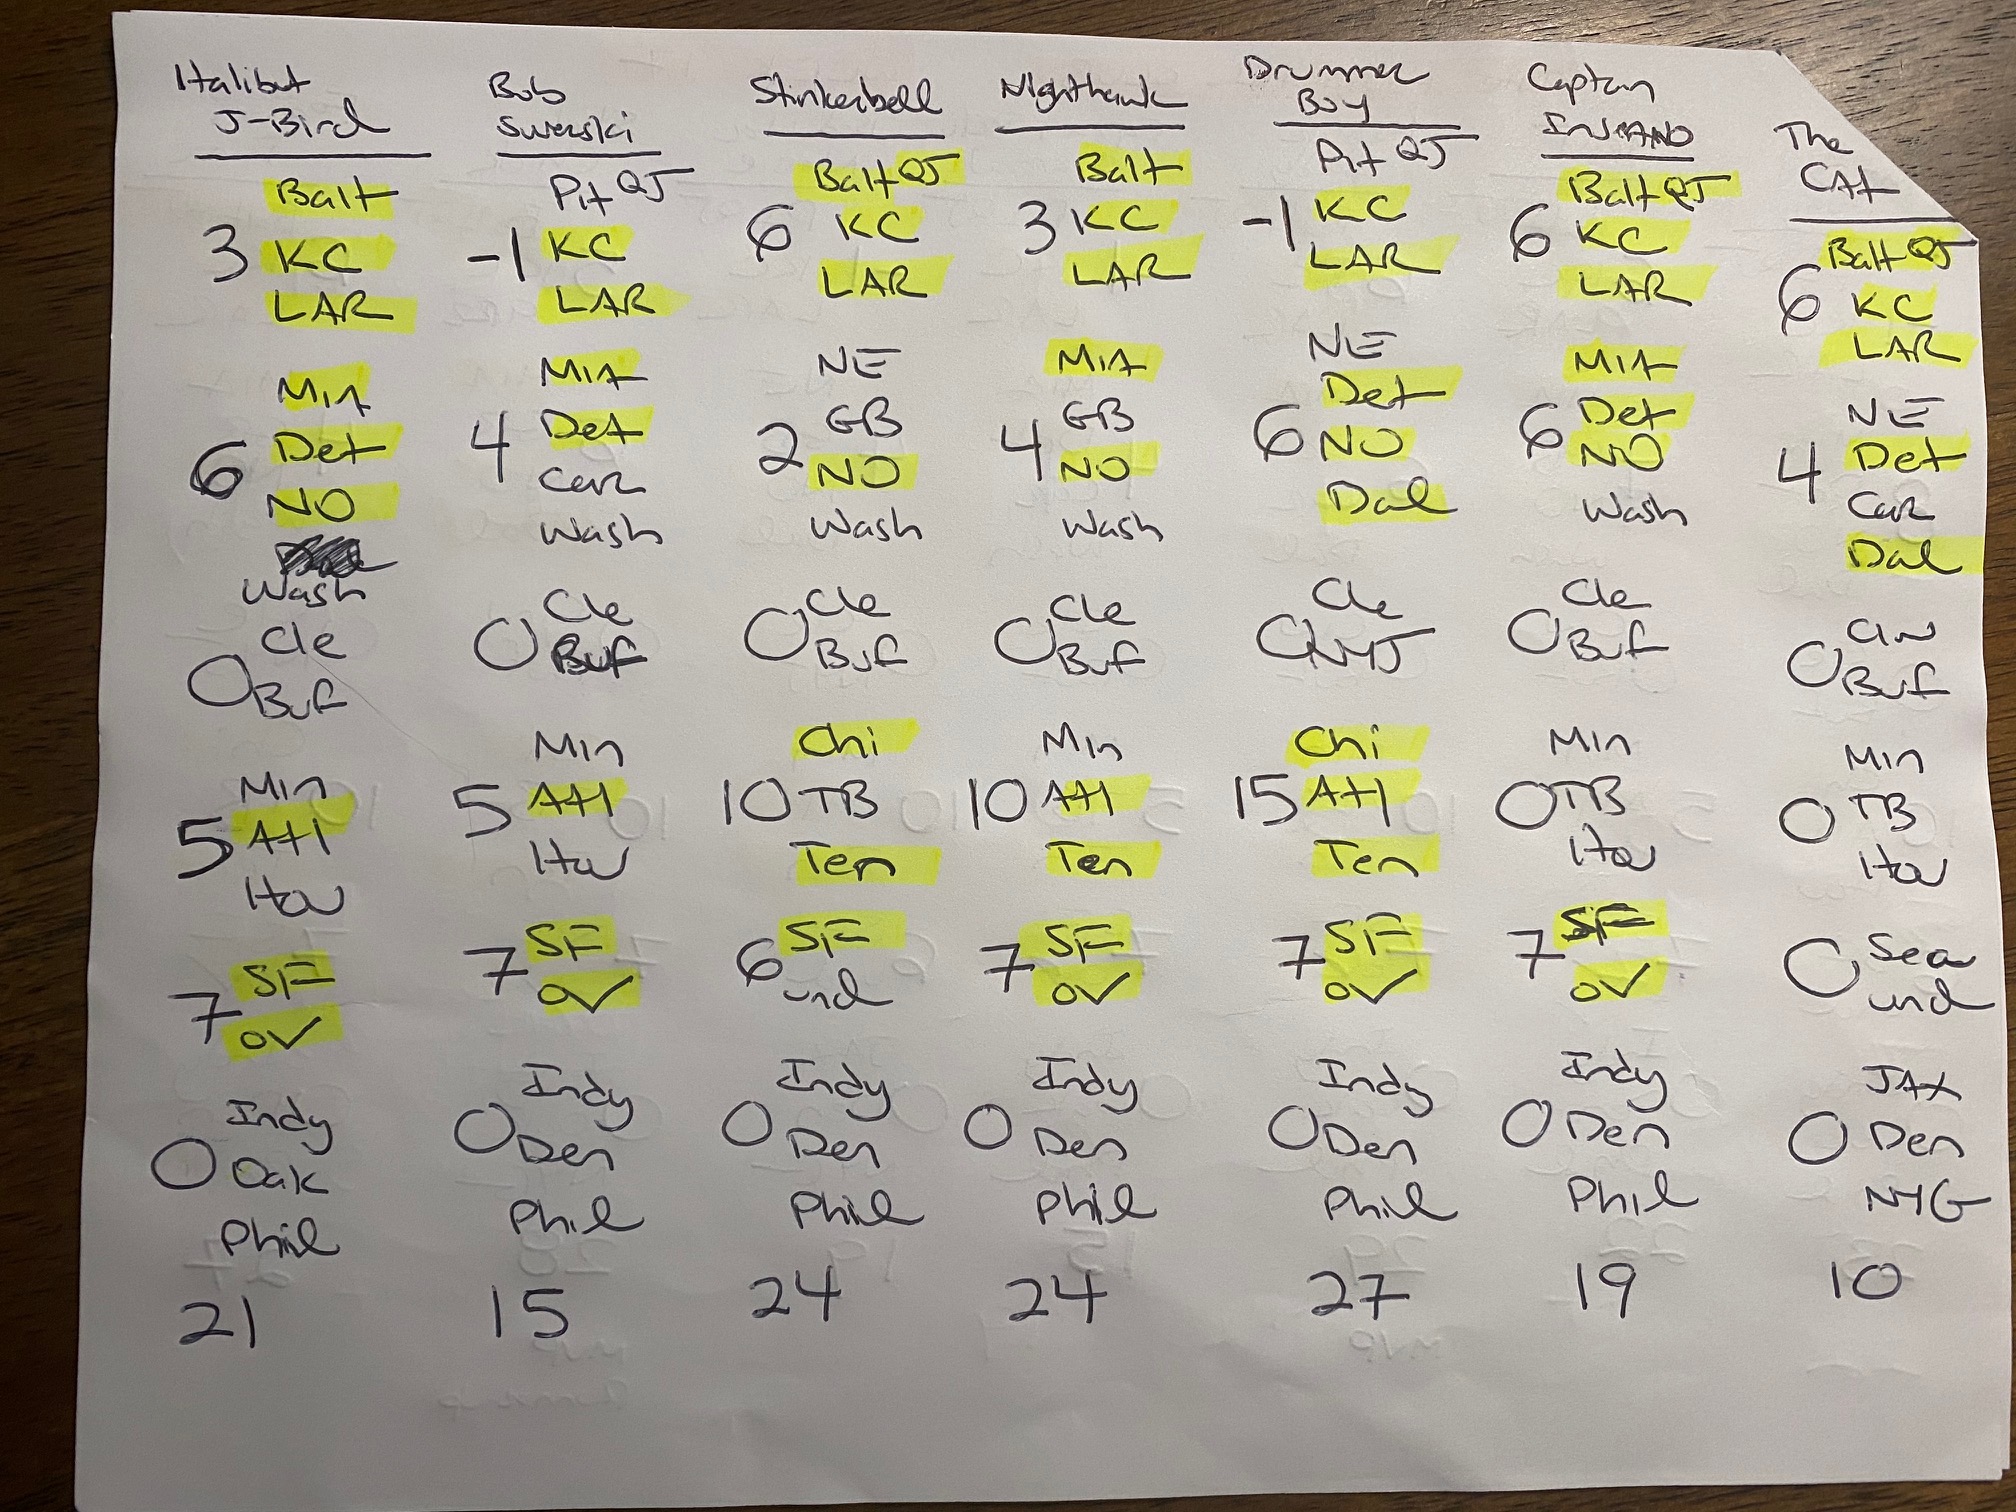 Italibut
J-Bird
Balt
3 KC
LAR
Mia
6 Det
NO
Wash
Cle
0 Buf
Min
5 Atl
Hou
SF
7 ov
Indy
0 Oak
Phil
21
Bob
Swerski
Pit QJ
-1 KC
LAR
Mia
4 Det
Car
Wash
Cle
0 Buf
Min
5 Atl
Hou
7 SF
ov
Indy
0 Den
Phil
15
Stinkerbell
Balt QJ
6 KC
LAR
NE
GB
2 NO
Wash
Cle
0 Buf
Chi
10 TB
Ten
SF
6 und
Indy
0 Den
Phil
24
Nighthawk
Balt
3 KC
LAR
MIA
GB
4 NO
Wash
Cle
0 Buf
Min
10 Atl
Ten
7 SF
ov
Indy
0 Den
Phil
24
Drummer
Boy
Pit QJ
-1 KC
LAR
NE
Det
6 NO
Dal
Cle
0 NYJ
Chi
15 Atl
Ten
7 SF
ov
Indy
0 Den
Phil
27
Captain
InsANO
Balt QJ
6 KC
LAR
MIA
6 Det
NO
Wash
Cle
0 Buf
Min
0 TB
Hou
7 SF
ov
Indy
0 Den
Phil
19
The
CAt
Balt QJ
6 KC
LAR
NE
4 Det
Car
Dal
CIN
0 Buf
Min
0 TB
Hou
0 Sea
und
JAX
0 Den
NYG
10